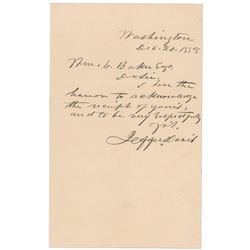 Washington
Dec. 20. 1858
Wm. E. Baker Esq.
I have the
honor to acknowledge
the receipt of yours,
and to be very respectfully
yrs.
Jeffer. Davis